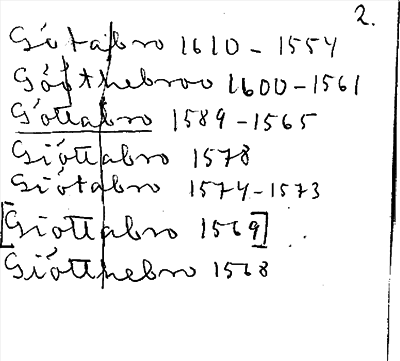 2.
Giötabro 1610 - 1554
Giötthebroo 1600 - 1561
Giöttabro 1589 - 1565
Giöttabro 1578
Giötabro 1574 - 1573
[Giöttabro 1569]
Giötthebro 1568